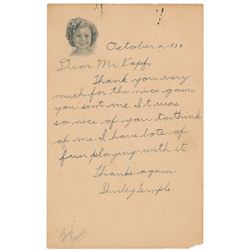 October 2, 1934
Dear Mr. Kopf,
Thank you very
much for the nice game
you sent me It was
so nice of you to think
of me I have lots of
fun playing with it.
Thanks again
Shirley Temple